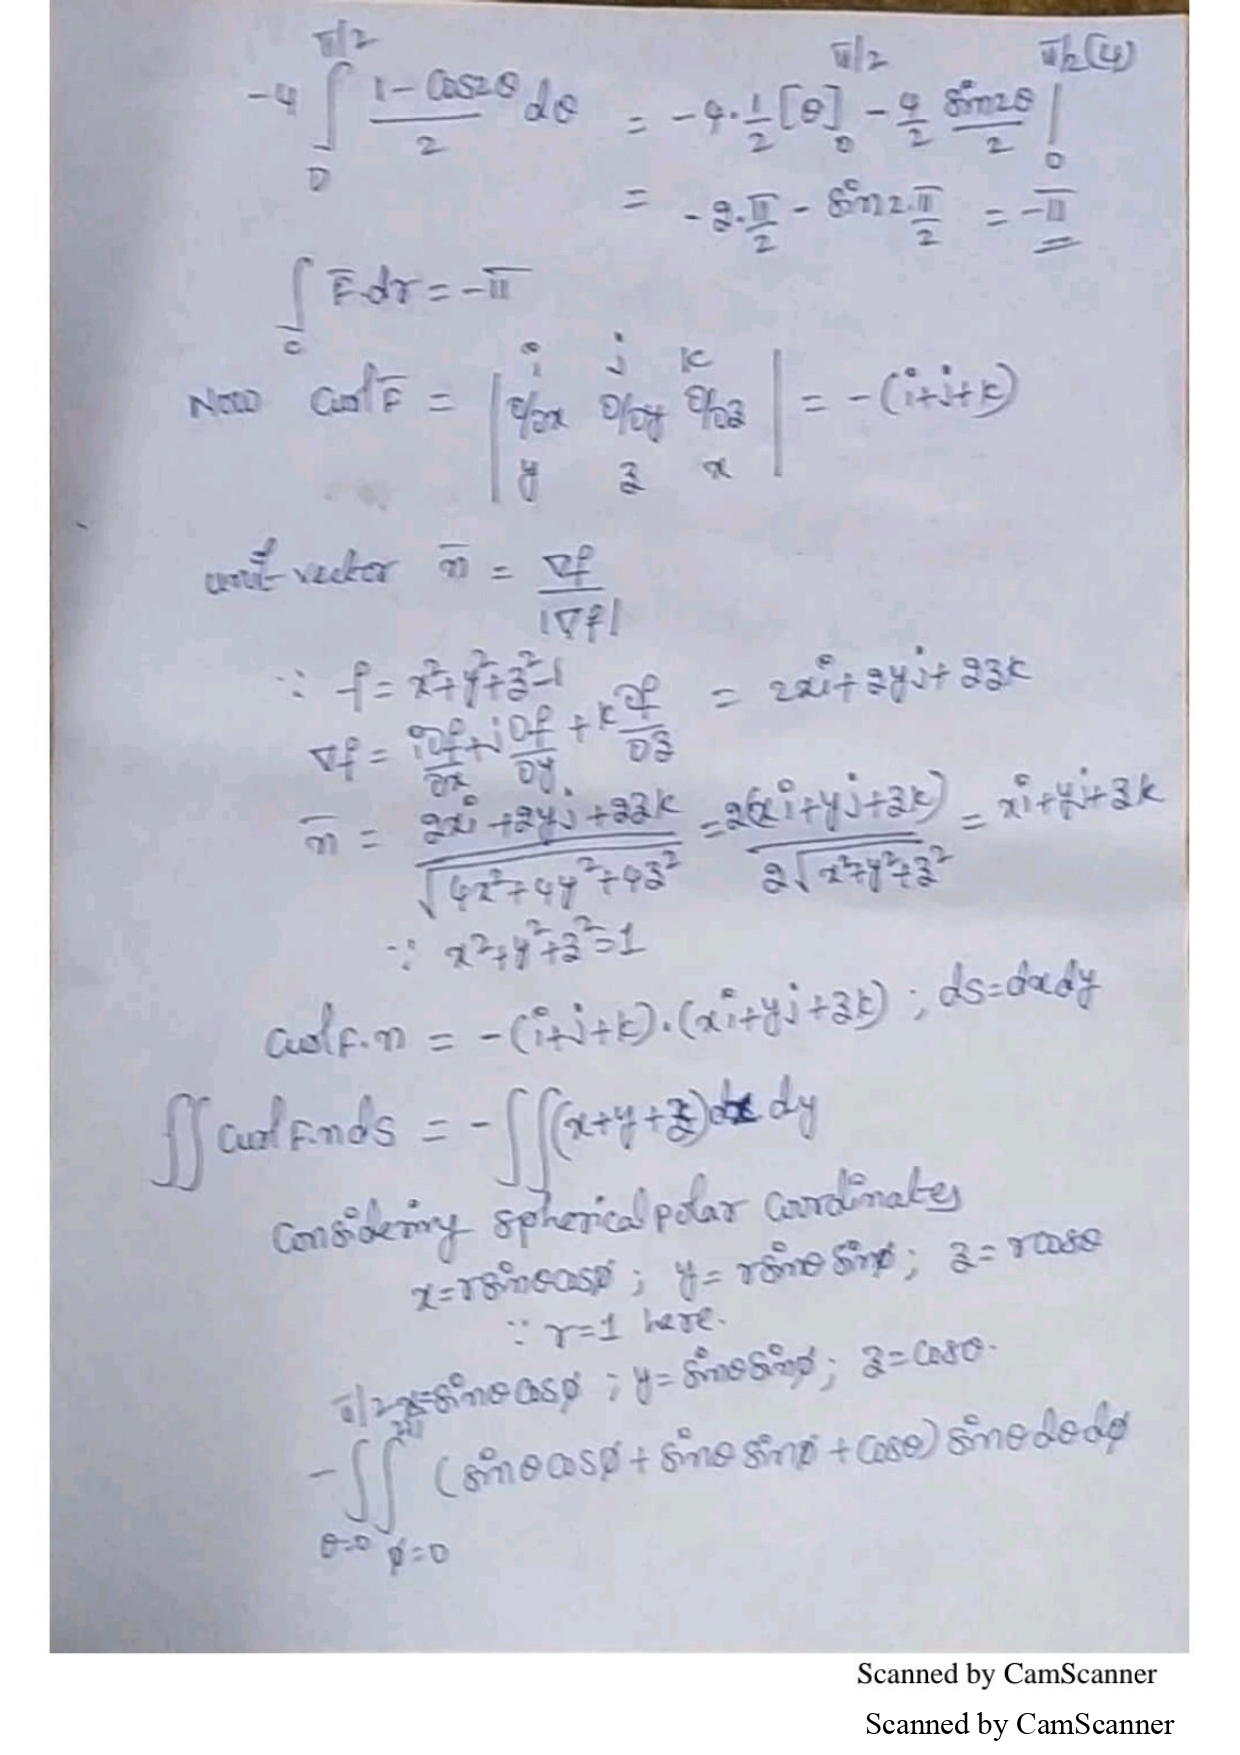 -4 ∫_0^{π/2} (1 - Cos2θ)/2 dθ = -4·1/2 [θ]_0^{π/2} - 4/2 sin2θ/2 |_0^{π/2 (4)}
= -2·π/2 - sin2·π/2 = -π
∫_c F̄·dr = -π
Now Curl F̄ = | i j k ; ∂/∂x ∂/∂y ∂/∂z ; y z x | = -(i+j+k)
unit vector n̄ = ∇f/|∇f|
∵ f = x²+y²+z²-1
∇f = i∂f/∂x + j∂f/∂y + k∂f/∂z = 2xi + 2yj + 2zk
n̄ = (2xi + 2yj + 2zk)/√(4x²+4y²+4z²) = 2(xi+yj+zk)/2√(x²+y²+z²) = xi+yj+zk
∵ x²+y²+z²=1
curl F·n = -(i+j+k)·(xi+yj+zk) ; ds=dxdy
∬ curl F·n ds = -∬(x+y+z)dx dy
Considering spherical polar coordinates
x=rsinθcosφ ; y=rsinθ sinφ ; z=rcosθ
∵ r=1 here.
x=sinθcosφ ; y=sinθsinφ ; z=cosθ.
-∫_{θ=0}^{π/2} ∫_{φ=0}^{2π} (sinθcosφ + sinθ sinφ + cosθ) sinθdθdφ
Scanned by CamScanner
Scanned by CamScanner